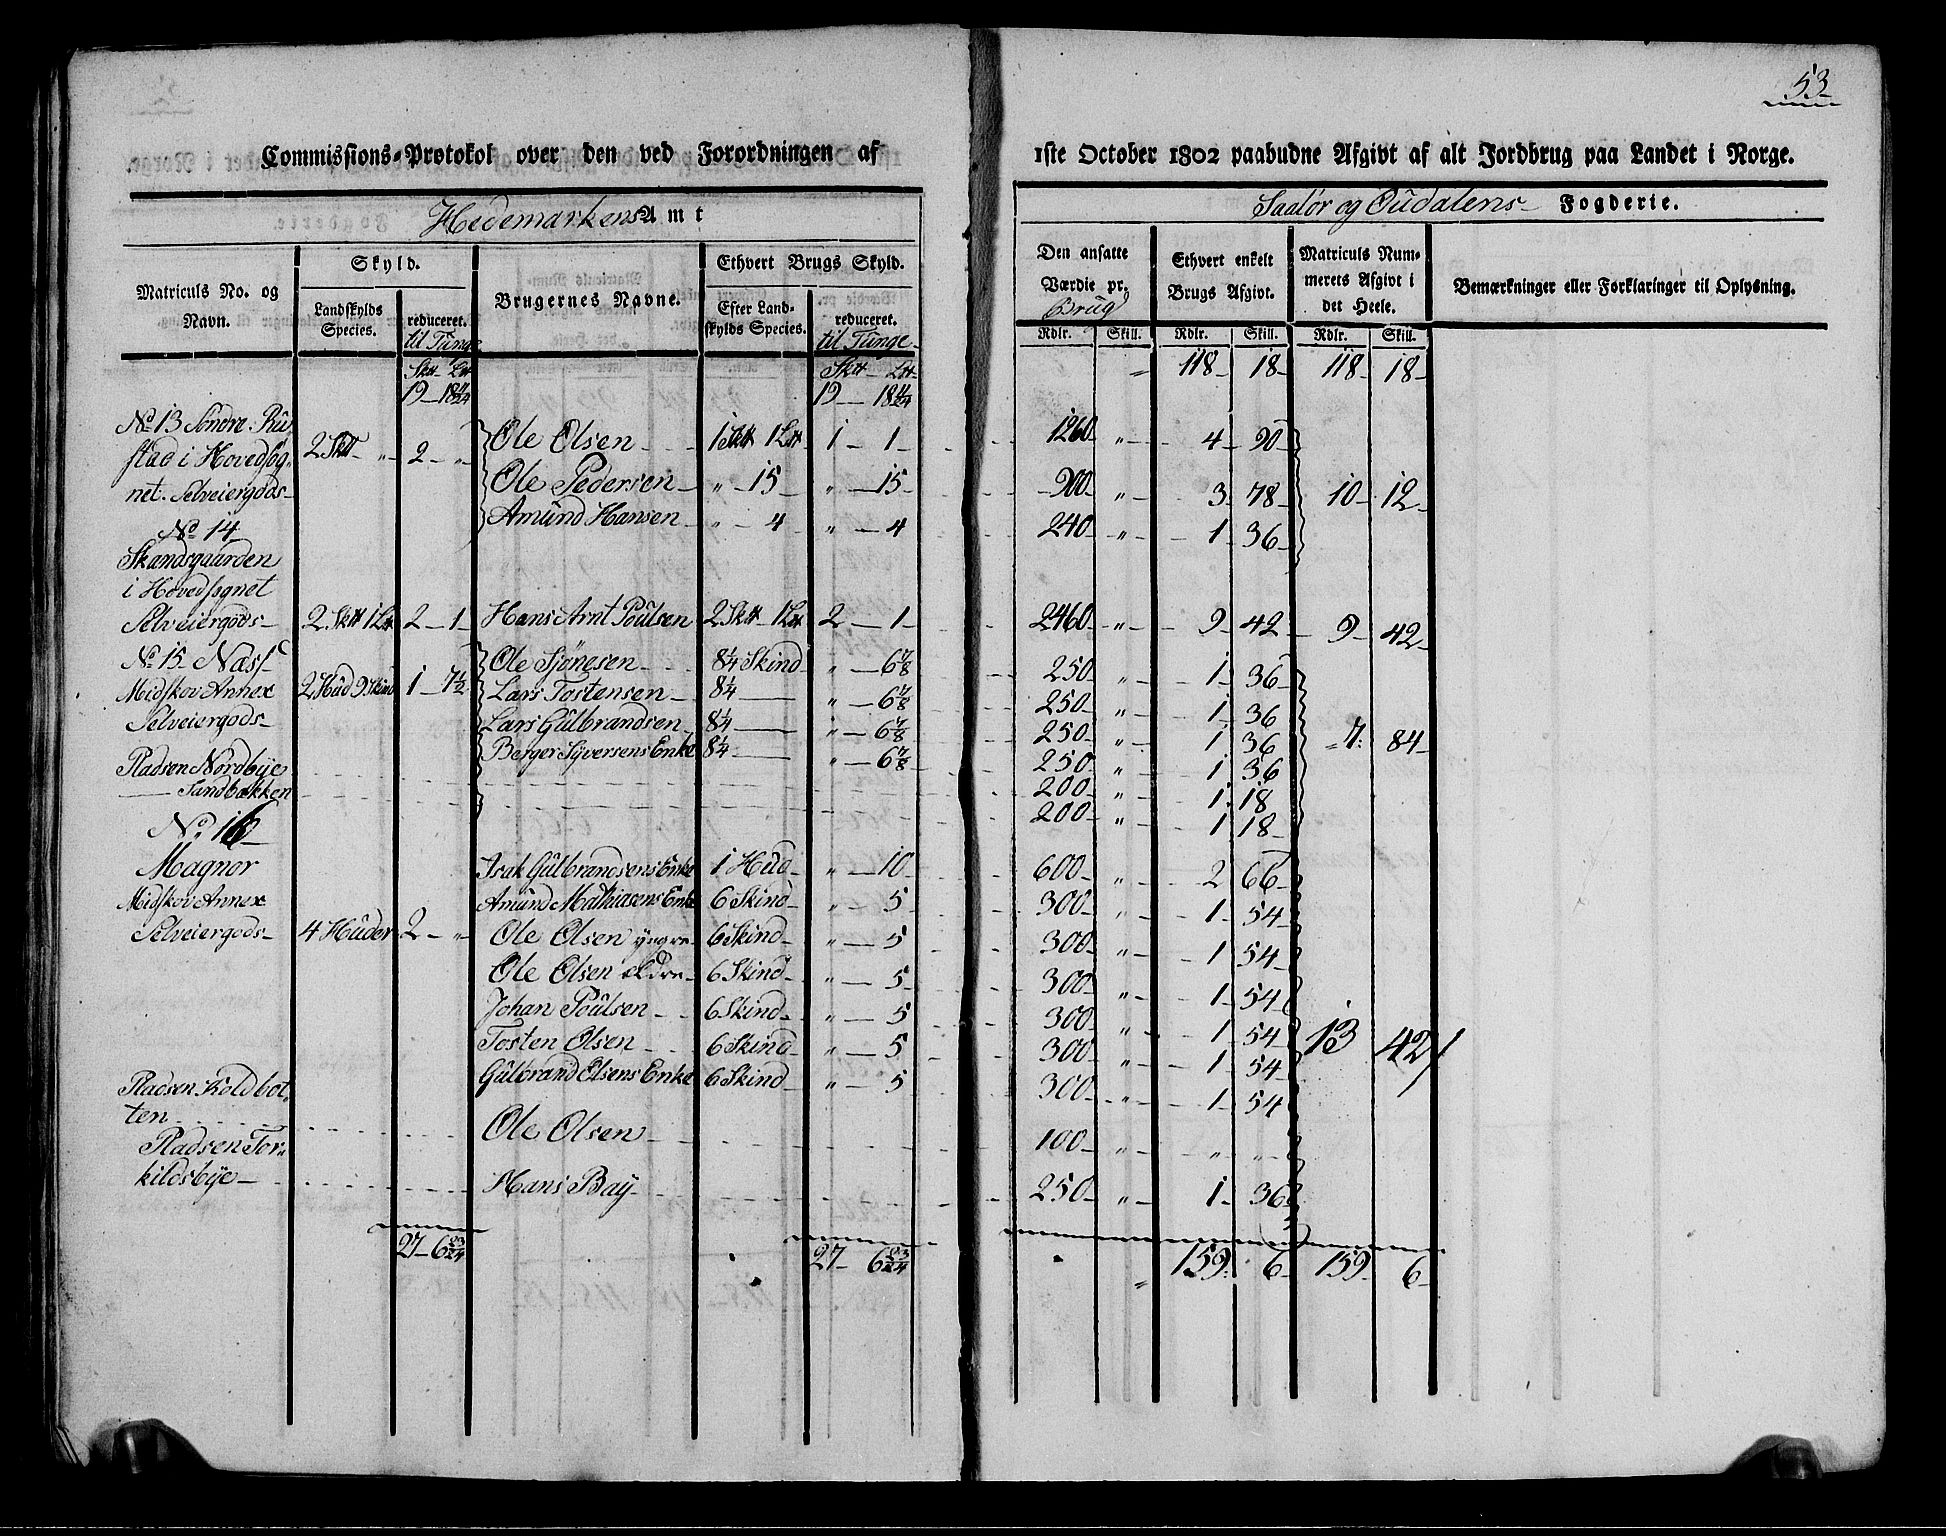 53
Commissions-Protokol over den ved Forordningen af 1ste October 1802 paabudne Afgivt af alt Jordbrug paa Landet i Norge.
Hedemarkens Amt
Soløer og Oudalens Fogderie.
Matriculs No. og Navn.
Skyld.
Landskylds Species.
reduceret. til Tunge
Brugernes Navne.
Ethvert Brugs Skyld.
Efter Landskylds Species.
reduceret. til Tunge
Den ansatte Værdie pr. Brug
Ethvert enkelt Brugs Afgivt.
Matriculs Nummerets Afgivt i det Heele.
Bemærkninger eller Forklaringer til Oplysning.
Rdlr. Skill. Rdlr. Skill. Rdlr. Skill.
" 118 18 118 18
19 18 11/24 19 18 11/24
No 13 Søndre Rustad i Hovedsognet. Selveiergods 2 Sk℔ " 2 " Ole Olsen 1 Sk℔ 1 L℔ 1 1 1260 " 4 90
Ole Pedersen " 15 " 15 900 " 3 78 10 12
Amund Hansen " 4 " 4 240 " 1 36
No 14
Skandsgaarden
i Hovedsognet
Selveiergods 2 Sk℔ 1 L℔ 2 1 Hans Arnt Poulsen 2 Sk℔ 1 L℔ 2 1 2460 " 9 42 9 42
No 15 Næss Ole Sjønesen 8¼ Skind " 6 7/8 250 " 1 36
Midskov Annex 2 Hud 9 Skind 1 7½ Lars Tostensen 8¼ " 6 7/8 250 " 1 36
Selveiergods Lars Gulbrandsen 8¼ " 6 7/8 250 " 1 36 7 84
Berger Syversens Enke 8¼ " 6 7/8 250 " 1 36
Pladsen Nordbye 200 " 1 18
Sandbækken 200 " 1 18
No 16
Magnor Isak Gulbrandsens Enke 1 Hud " 10 600 " 2 66
Midskov Annex Amund Mathiasens Enke 6 Skind " 5 300 " 1 54
Selveiergods 4 Huder 2 " Ole Olsen yngre 6 Skind " 5 300 " 1 54
Ole Olsen ældre 6 Skind " 5 300 " 1 54
Johan Poulsen 6 Skind " 5 300 " 1 54 13 42
Tosten Olsen 6 Skind " 5 300 " 1 54
Gulbrand Olsens Enke 6 Skind " 5 300 " 1 54
Pladsen Koldbotten Ole Olsen 100 " " "
Pladsen Torkildsbye Hans Bay 250 " 1 36
27 6 23/24 27 6 23/24 " 159 6 159 6